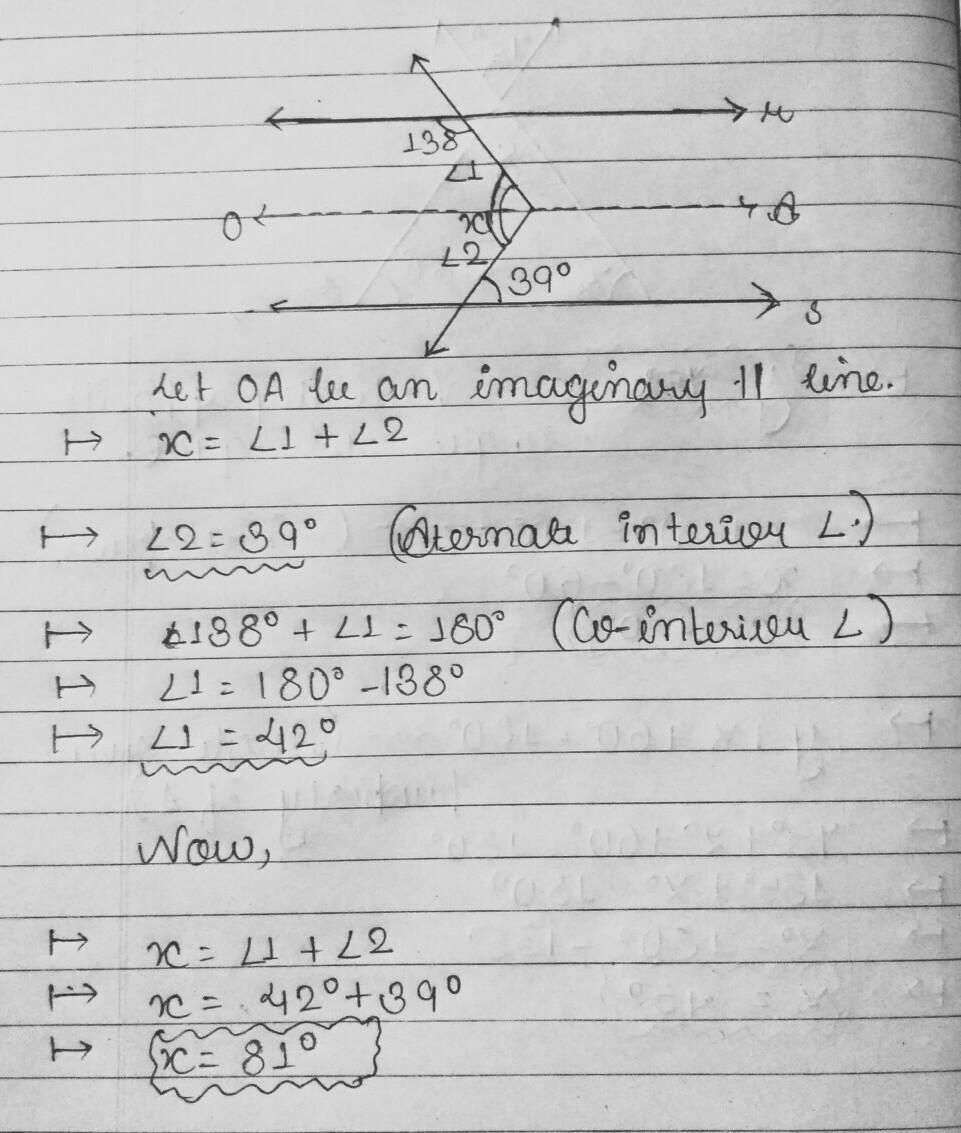 r
138
∠1
O
x
A
∠2
39°
s
Let OA be an imaginary || line.
↦ x = ∠1 + ∠2
↦ ∠2 = 39° (Alternate interior ∠.)
↦ ∠138° + ∠1 = 180° (Co-interior ∠)
↦ ∠1 = 180° - 138°
↦ ∠1 = 42°
Now,
↦ x = ∠1 + ∠2
↦ x = 42° + 39°
↦ x = 81°